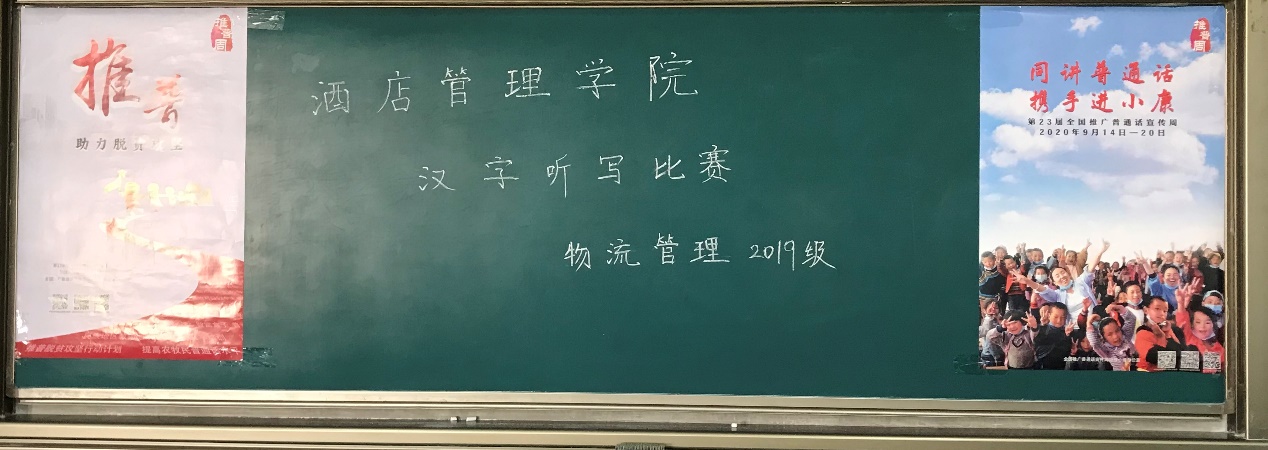 推普
助力脱贫
推普周
酒店管理学院
汉字听写比赛
物流管理 2019级
推普周
同讲普通话
携手进小康
第23届全国推广普通话宣传周
2020年9月14日—20日
推普脱贫攻坚行动计划